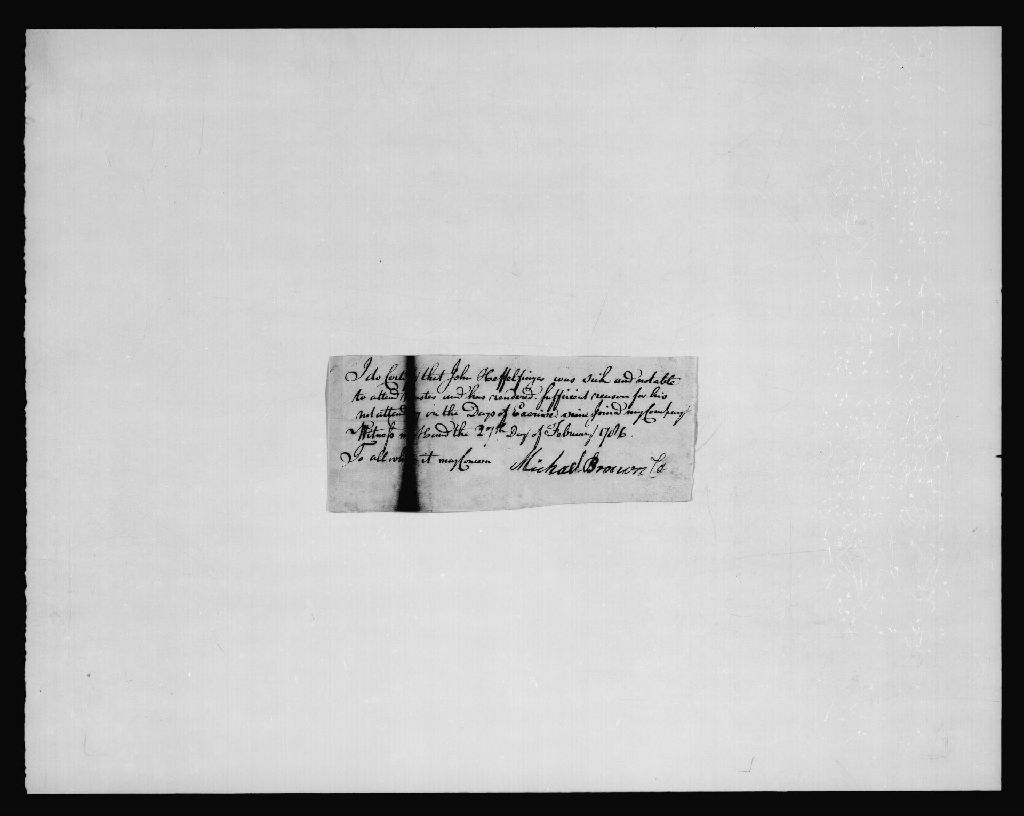 I do Certify that John Heffelfinger was Sick and notable
to attend Muster and has rendered Sufficient reason for his
not attending on the Days of Exercise since Joind my Company
Witness my hand the 27th Day of February 1786.
To all whom it may Concern Michael Brown Ca